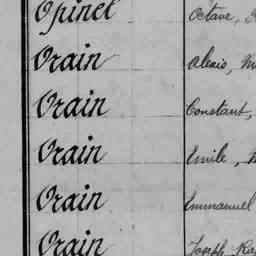 Opinel Octave,
Vrain Alexis, M
Vrain Constant,
Vrain Emile,
Vrain Emmanuel
Vrain Joseph Ra